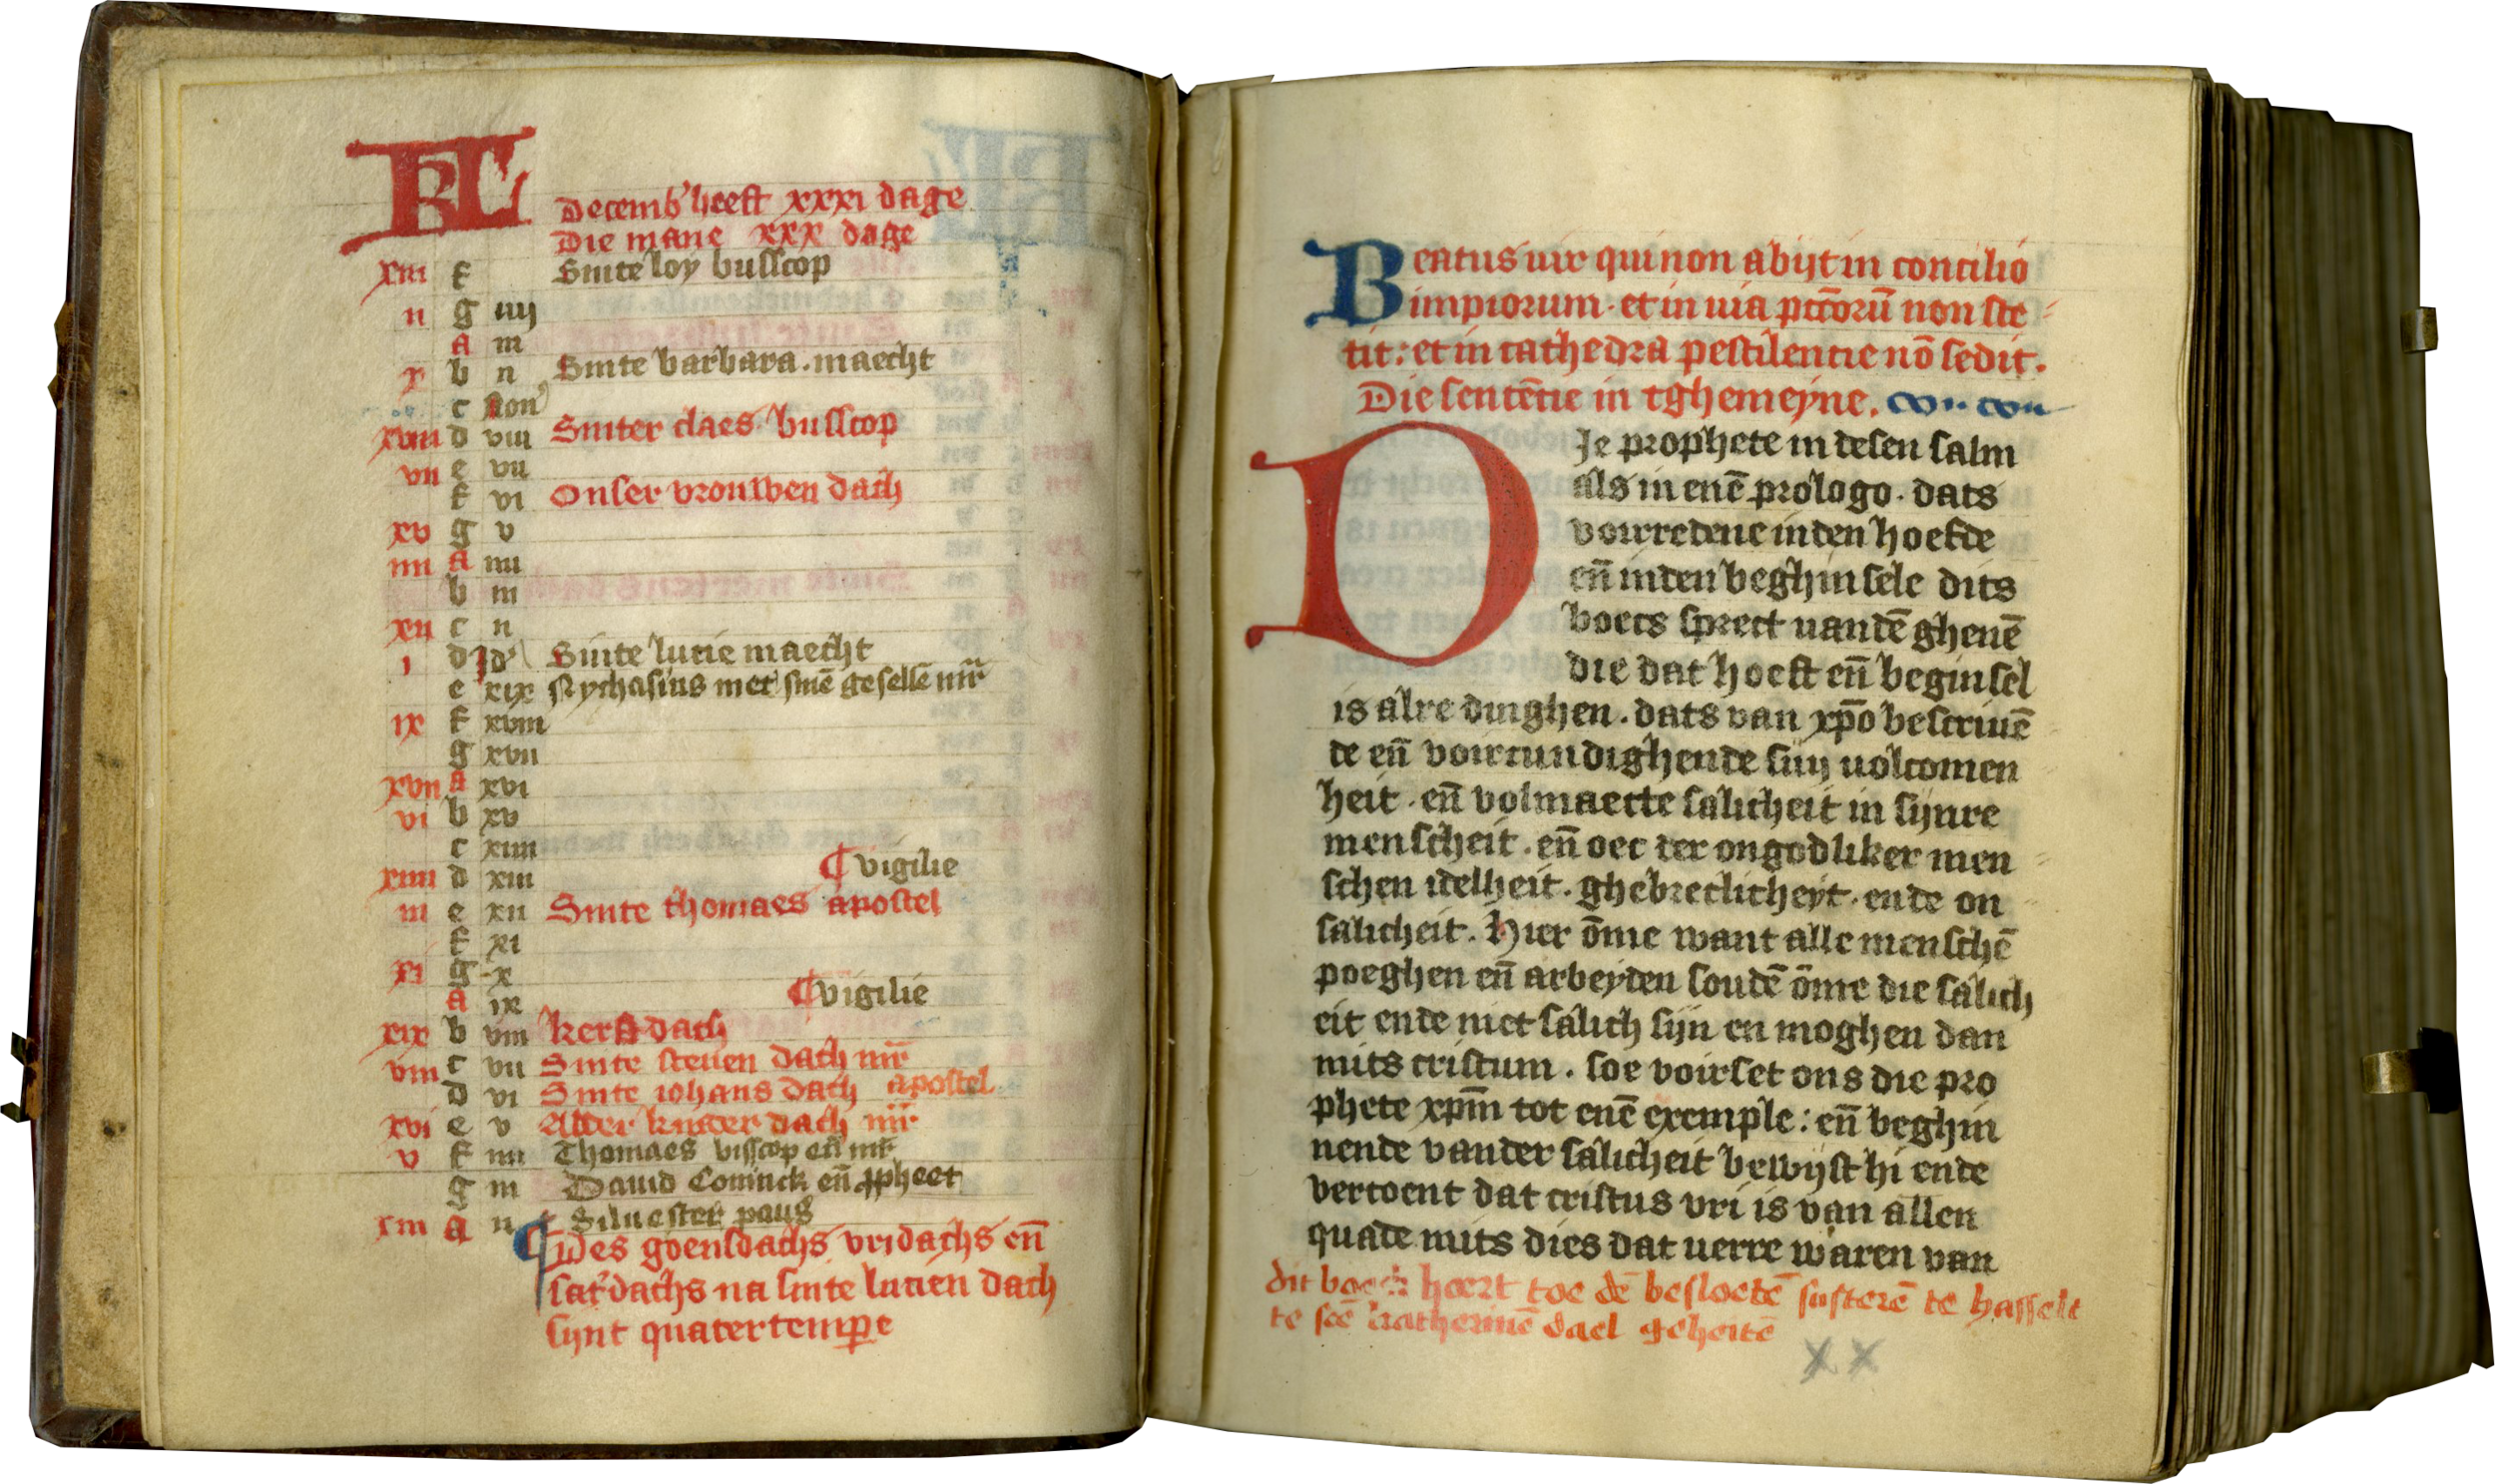 KL
Decemb' heeft xxxi dage
Die mane xxx dage
xiii f Sinte loy busscop
ii g iiij
A iii
x b ii Sinte barbara. maecht
c Non'
xviii d viii Sinter claes busscop
vii e vii
f vi Onser vrouwen dach
xv g v
iiii A iiii
b iii
xii c ii
i d Id' Sinte lucie maecht
e xix Nychasius met sinē gesellē mr̄
ix f xviii
g xvii
xvii A xvi
vi b xv
c xiiii
xiiii d xiii ¶ vigilie
iii e xii Sinte thomaes apostel
f xi
xi g x
A ix ¶ vigilie
xix b viii kerstdach
viii c vii Sinte steuen dach mr̄
d vi Sinte iohans dach apostel
xvi e v Alder kinder dach mr̄
v f iiii Thomaes visscop eñ mr̄
g iii Dauid Coninck eñ ꝓpheet
xiii A ii Siluester paus
¶ Des goensdachs vridachs eñ
sat'dachs na sinte lucien dach
sijnt quatertempe
Beatus uir qui non abijt in concilio
impiorum. et in uia pctōrū non ste
tit: et in cathedra pestilencie nō sedit.
Die sentētie in tghemeyne.
DJe prophete in desen salm
als in enē prologo. dats
voirredene inden hoefde
eñ inden beghinsele dits
boecs sprect uandē ghenē
die dat hoeft eñ beginsel
is alre dinghen. dats van xp̄o bescriuē
de eñ voircundighende sijn uolcomen
heit. eñ volmaecte salicheit in sijnre
menscheit. eñ oec der ongodliker men
schen idelheit. ghebreclicheyt. ende on
salicheit. Hier ōme want alle menschē
poeghen eñ arbeyden soudē ōme die salich
eit ende niet salich sijn en moghen dan
mits cristum. soe voirset ons die pro
phete xpm̄ tot enē exemple: eñ beghin
nende vander salicheit bewijst hi ende
vertoent dat cristus vri is van allen
quade mits dies dat uerre waren van
dit boech hoert toe dē beslotē susterē te hasselt
te scē katherinē dael geheitē
x x